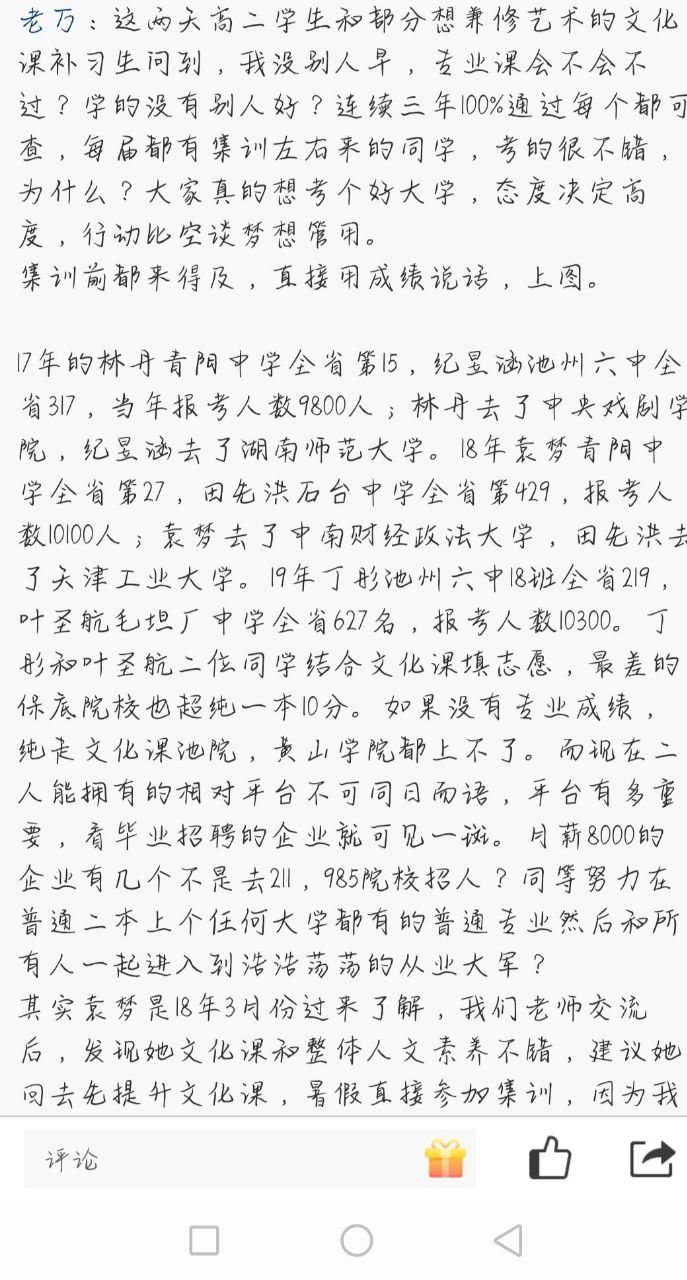 老万：这两天高二学生和部分想兼修艺术的文化
课补习生问到，我没别人早，专业课会不会不
过？学的没有别人好？连续三年100%通过每个都可
查，每届都有集训左右来的同学，考的很不错，
为什么？大家真的想考个好大学，态度决定高
度，行动比空谈梦想管用。
集训前都来得及，直接用成绩说话，上图。
17年的林丹青阳中学全省第15，纪昱涵池州六中全
省317，当年报考人数9800人；林丹去了中央戏剧学
院，纪昱涵去了湖南师范大学。18年袁梦青阳中
学全省第27，田先洪石台中学全省第429，报考人
数10100人；袁梦去了中南财经政法大学，田先洪去
了天津工业大学。19年丁彤池州六中18班全省219，
叶圣航毛坦厂中学全省627名，报考人数10300。丁
彤和叶圣航二位同学结合文化课填志愿，最差的
保底院校也超纯一本10分。如果没有专业成绩，
纯走文化课池院，黄山学院都上不了。而现在二
人能拥有的相对平台不可同日而语，平台有多重
要，看毕业招聘的企业就可见一斑。月薪8000的
企业有几个不是去211，985院校招人？同等努力在
普通二本上个任何大学都有的普通专业然后和所
有人一起进入到浩浩荡荡的从业大军？
其实袁梦是18年3月份过来了解，我们老师交流
后，发现她文化课和整体人文素养不错，建议她
回去先提升文化课，暑假直接参加集训，因为我
评论